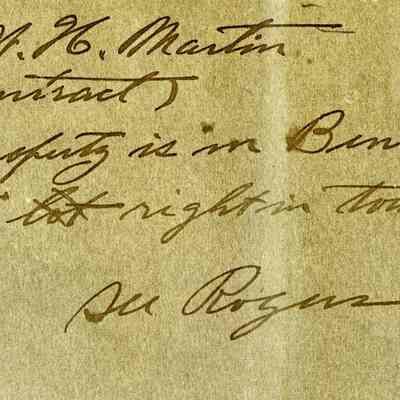 H. Martin
ontract)
operty is in Ben
lot right in tow
see Rogers